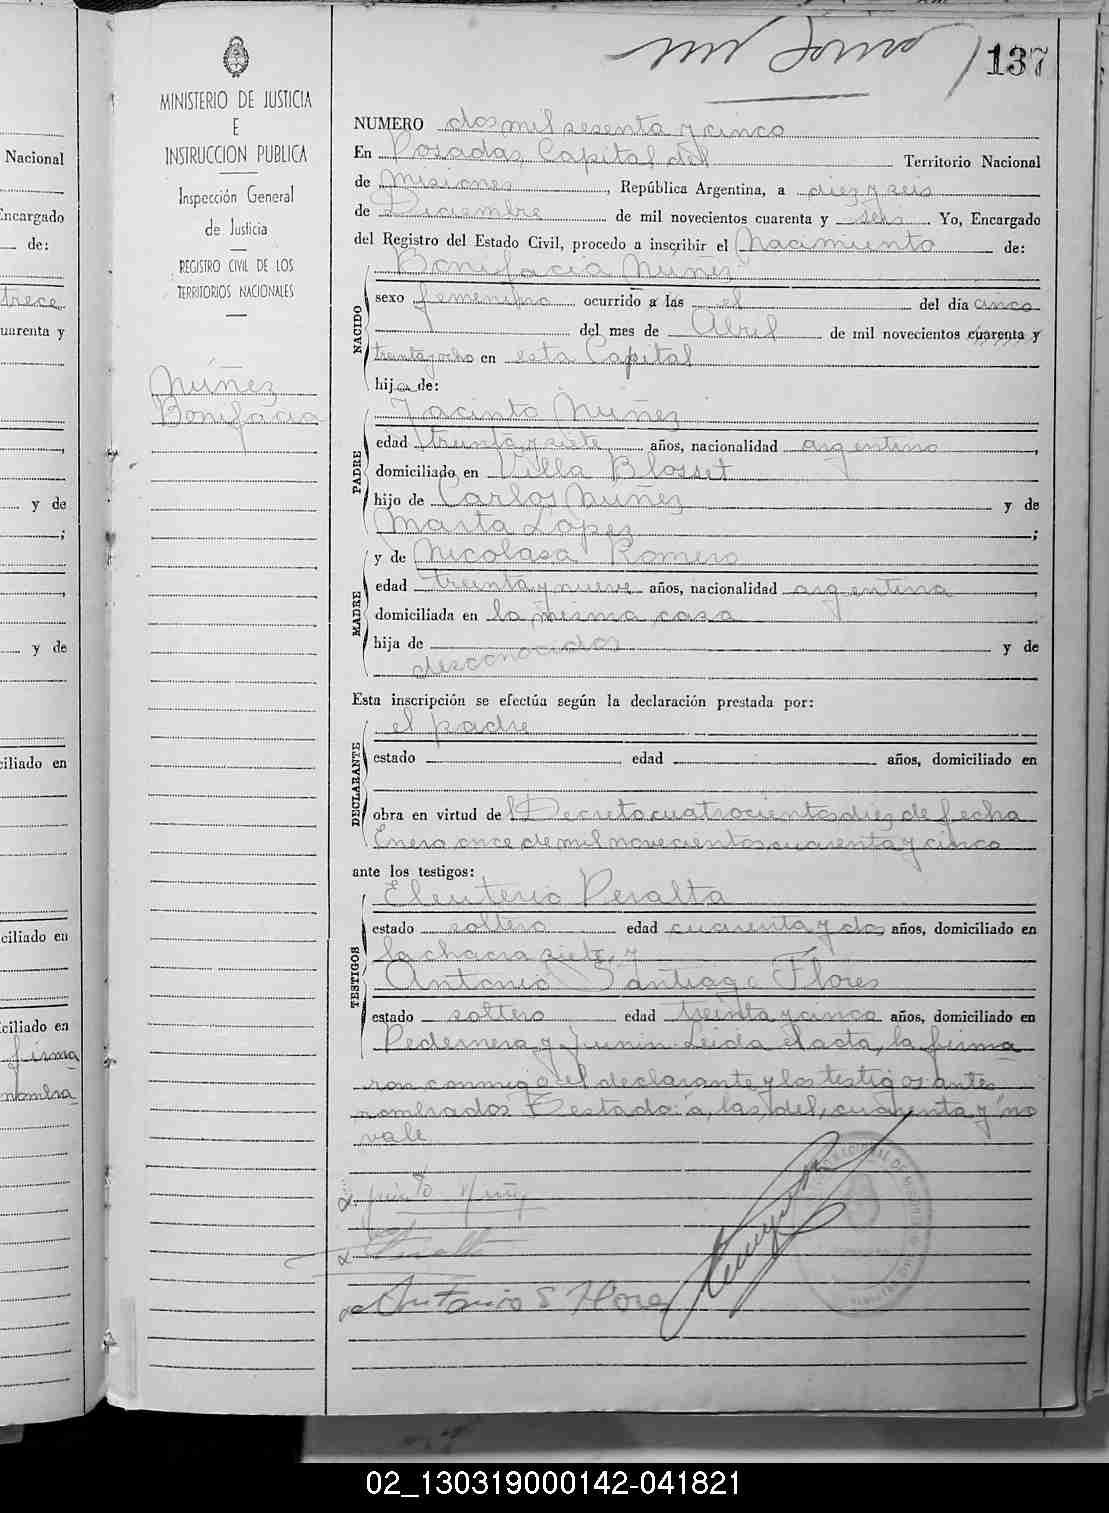 137
MINISTERIO DE JUSTICIA
E
INSTRUCCION PUBLICA
Inspección General
de Justicia
REGISTRO CIVIL DE LOS
TERRITORIOS NACIONALES
Núñez
Bonifacia
NUMERO dos mil sesenta y cinco
En Posadas Capital del Territorio Nacional
de Misiones, República Argentina, a diez y seis
de Diciembre de mil novecientos cuarenta y seis. Yo, Encargado
del Registro del Estado Civil, procedo a inscribir el Nacimiento de:
NACIDO
Bonifacia Nuñez
sexo femenino ocurrido a las el del día cinco
del mes de Abril de mil novecientos cuarenta y
treinta y ocho en esta Capital
hija de:
PADRE
Jacinto Nuñez
edad treinta y siete años, nacionalidad argentino,
domiciliado en Villa Blosset
hijo de Carlos Nuñez y de
Marta Lopez;
MADRE
y de Nicolasa Romero
edad treinta y nueve años, nacionalidad argentina,
domiciliada en la misma casa
hija de y de
desconocidos
Esta inscripción se efectúa según la declaración prestada por:
DECLARANTE
el padre
estado edad años, domiciliado en
obra en virtud de Decreto cuatrocientos diez de fecha
Enero once de mil novecientos cuarenta y cinco
ante los testigos:
TESTIGOS
Eleuterio Peralta
estado soltero edad cuarenta y dos años, domiciliado en
la chacra siete, y
Antonio Santiago Flores
estado soltero edad treinta y cinco años, domiciliado en
Pedernera y Junin. Leida el acta, la firma
ron conmigo el declarante y los testigos antes
nombrados. Testado: a, las, del, cuarenta y "no
vale
Antonio S Flores
Nacional
Encargado
de:
trece
uarenta y
y de
;
y de
ciliado en
ciliado en
ciliado en
firma
nombra
02_130319000142-041821